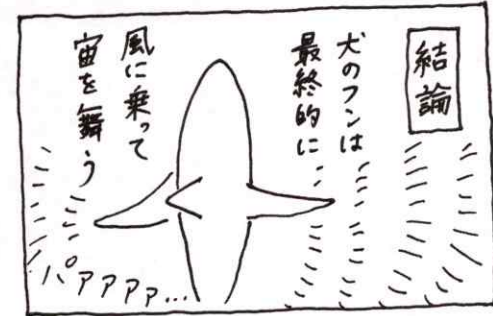 結論
犬のフンは
最終的に
風に乗って
宙を舞う
パァァァァ...